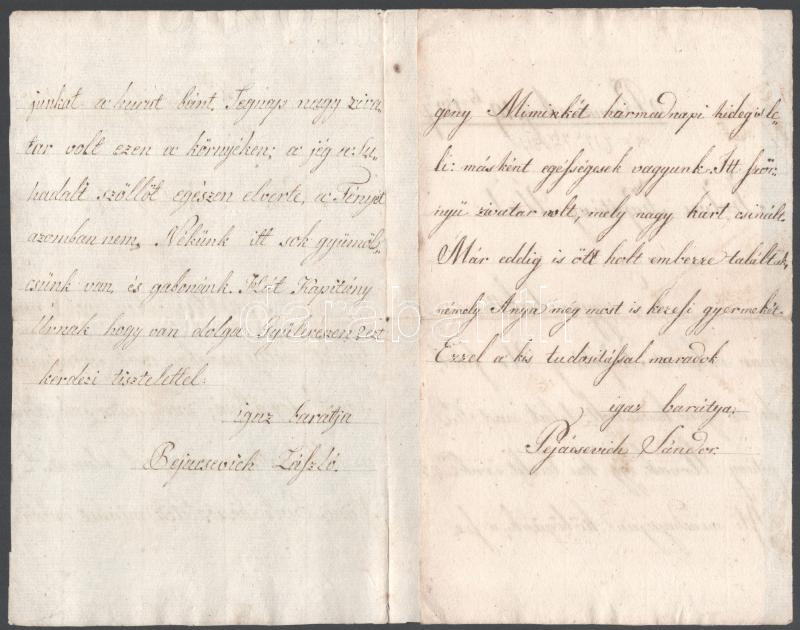 junkat a hurut bánt. Tegnap nagy ziva-
tar volt ezen a környéken; a jég a Su-
hadalt szöllőt egészen elverte, a Fényit
azomban nem. Nékünk itt sok gyümöl-
csünk van, és gabonánk. Hát Kapitány
Urnak hogy van dolga ezt
kérdezi tisztelettel.
igaz barátja
Pejacsevich László.
geny Miminkét hármadnapi hideg is le-
li: másként egésségesek vagyunk. Itt ször-
nyü zivatar volt, mely nagy kárt csinált.
Már eddig is ött holt emberre találtak,
némely Anya még most is keresi gyermekét.
Ezzel a kis tudositással maradok
igaz barátya.
Pejácsevich Sándor.
darabanth